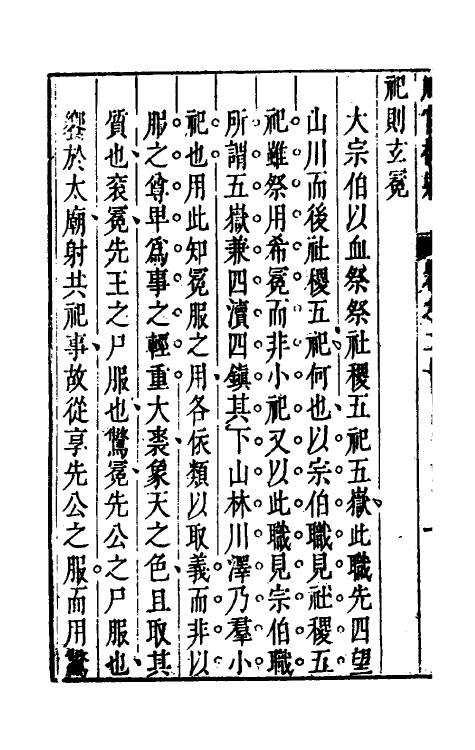 祀則玄冕
大宗伯以血祭祭社稷五祀五嶽此職先四望
山川而後社稷五祀何也以宗伯職見社稷五
祀雖祭用希冕而非小祀又以此職見宗伯職
所謂五嶽兼四瀆四鎮其下山林川澤乃羣小
祀也用此知冕服之用各依類以取義而非以
服之尊卑爲事之輕重大裘象天之色且取其
質也衮冕先王之尸服也鷩冕先公之尸服也
饗於太廟射共祀事故從享先公之服而用鷩